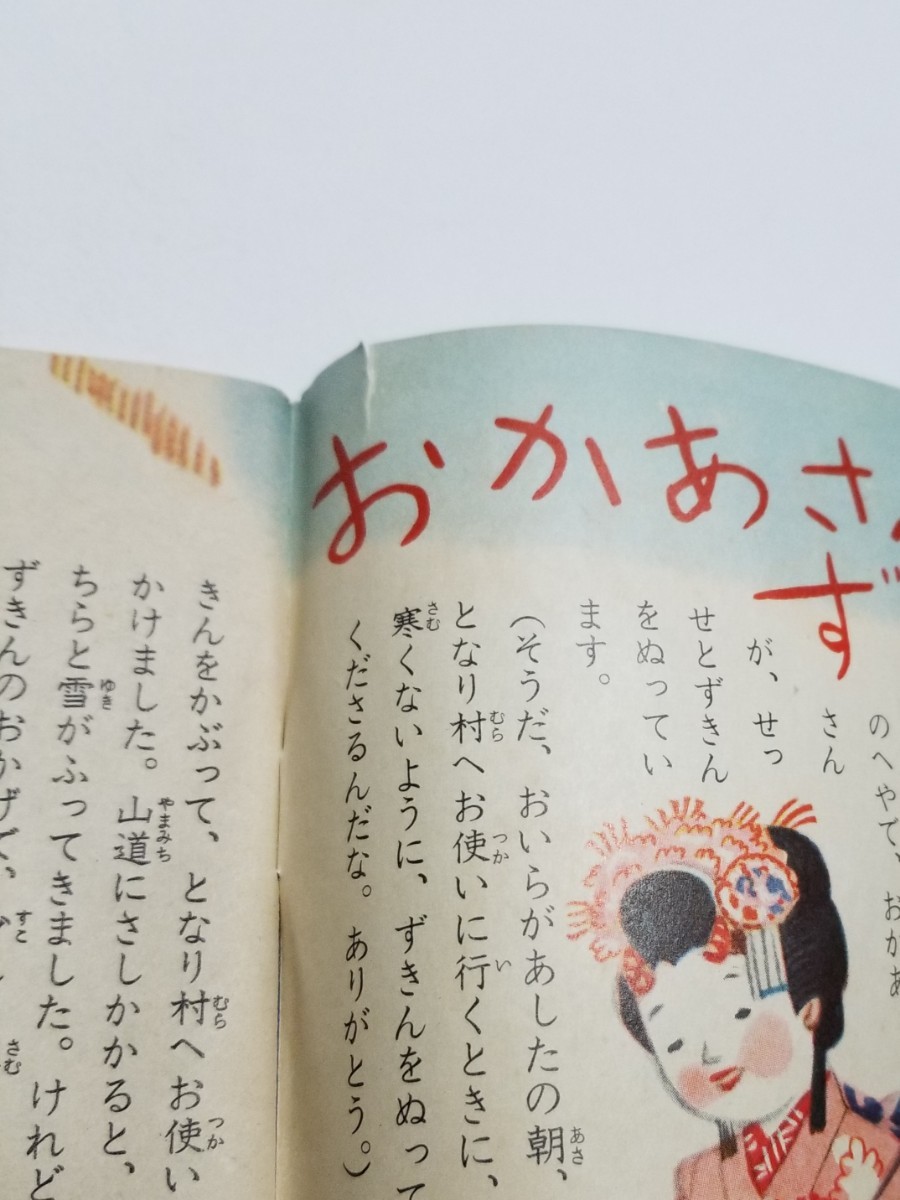 おかあさ
ず
のへやで、おかあ
さん
が、せっ
せとずきん
をぬってい
ます。
(そうだ、おいらがあしたの朝、
となり村へお使いに行くときに、
寒くないように、ずきんをぬって
くださるんだな。ありがとう。)
きんをかぶって、となり村へお使い
かけました。山道にさしかかると、
ちらと雪がふってきました。けれど
ずきんのおかげで、